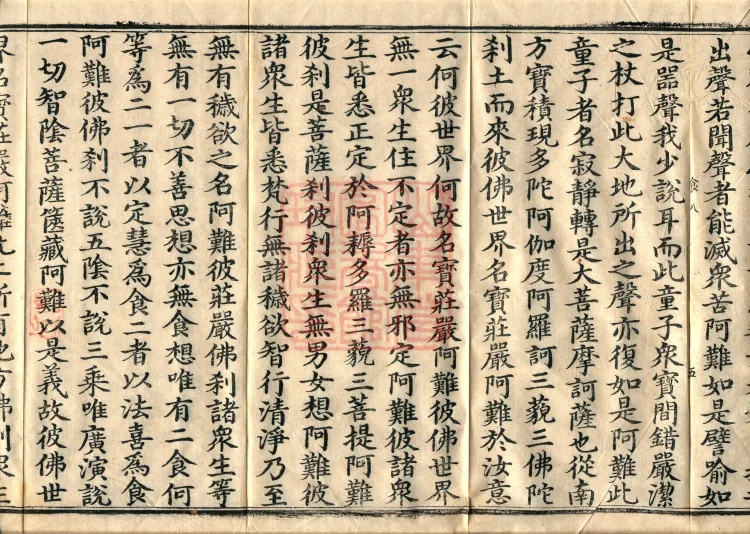 出聲若聞聲者能滅衆苦阿難如是譬喻如
是噐聲我少說耳而此童子衆寶間錯嚴潔
食八
五
之杖打此大地所出之聲亦復如是阿難此
童子者名寂靜轉是大菩薩摩訶薩也從南
方寶積現多陀阿伽度阿羅訶三藐三佛陀
刹土而來彼佛世界名寶莊嚴阿難於汝意
云何彼世界何故名寶莊嚴阿難彼佛世界
無一衆生住不定者亦無邪定阿難彼諸衆
生皆悉正定於阿耨多羅三藐三菩提阿難
彼刹是菩薩刹彼刹衆生無男女想阿難彼
諸衆生皆悉梵行無諸穢欲智行清淨乃至
無有穢欲之名阿難彼莊嚴佛刹諸衆生等
無有一切不善思想亦無食想唯有二食何
等爲二一者以定慧爲食二者以法喜爲食
阿難彼佛刹不說五陰不說三乘唯廣演說
一切智陰菩薩篋藏阿難以是義故彼佛世
界名寶莊嚴阿難